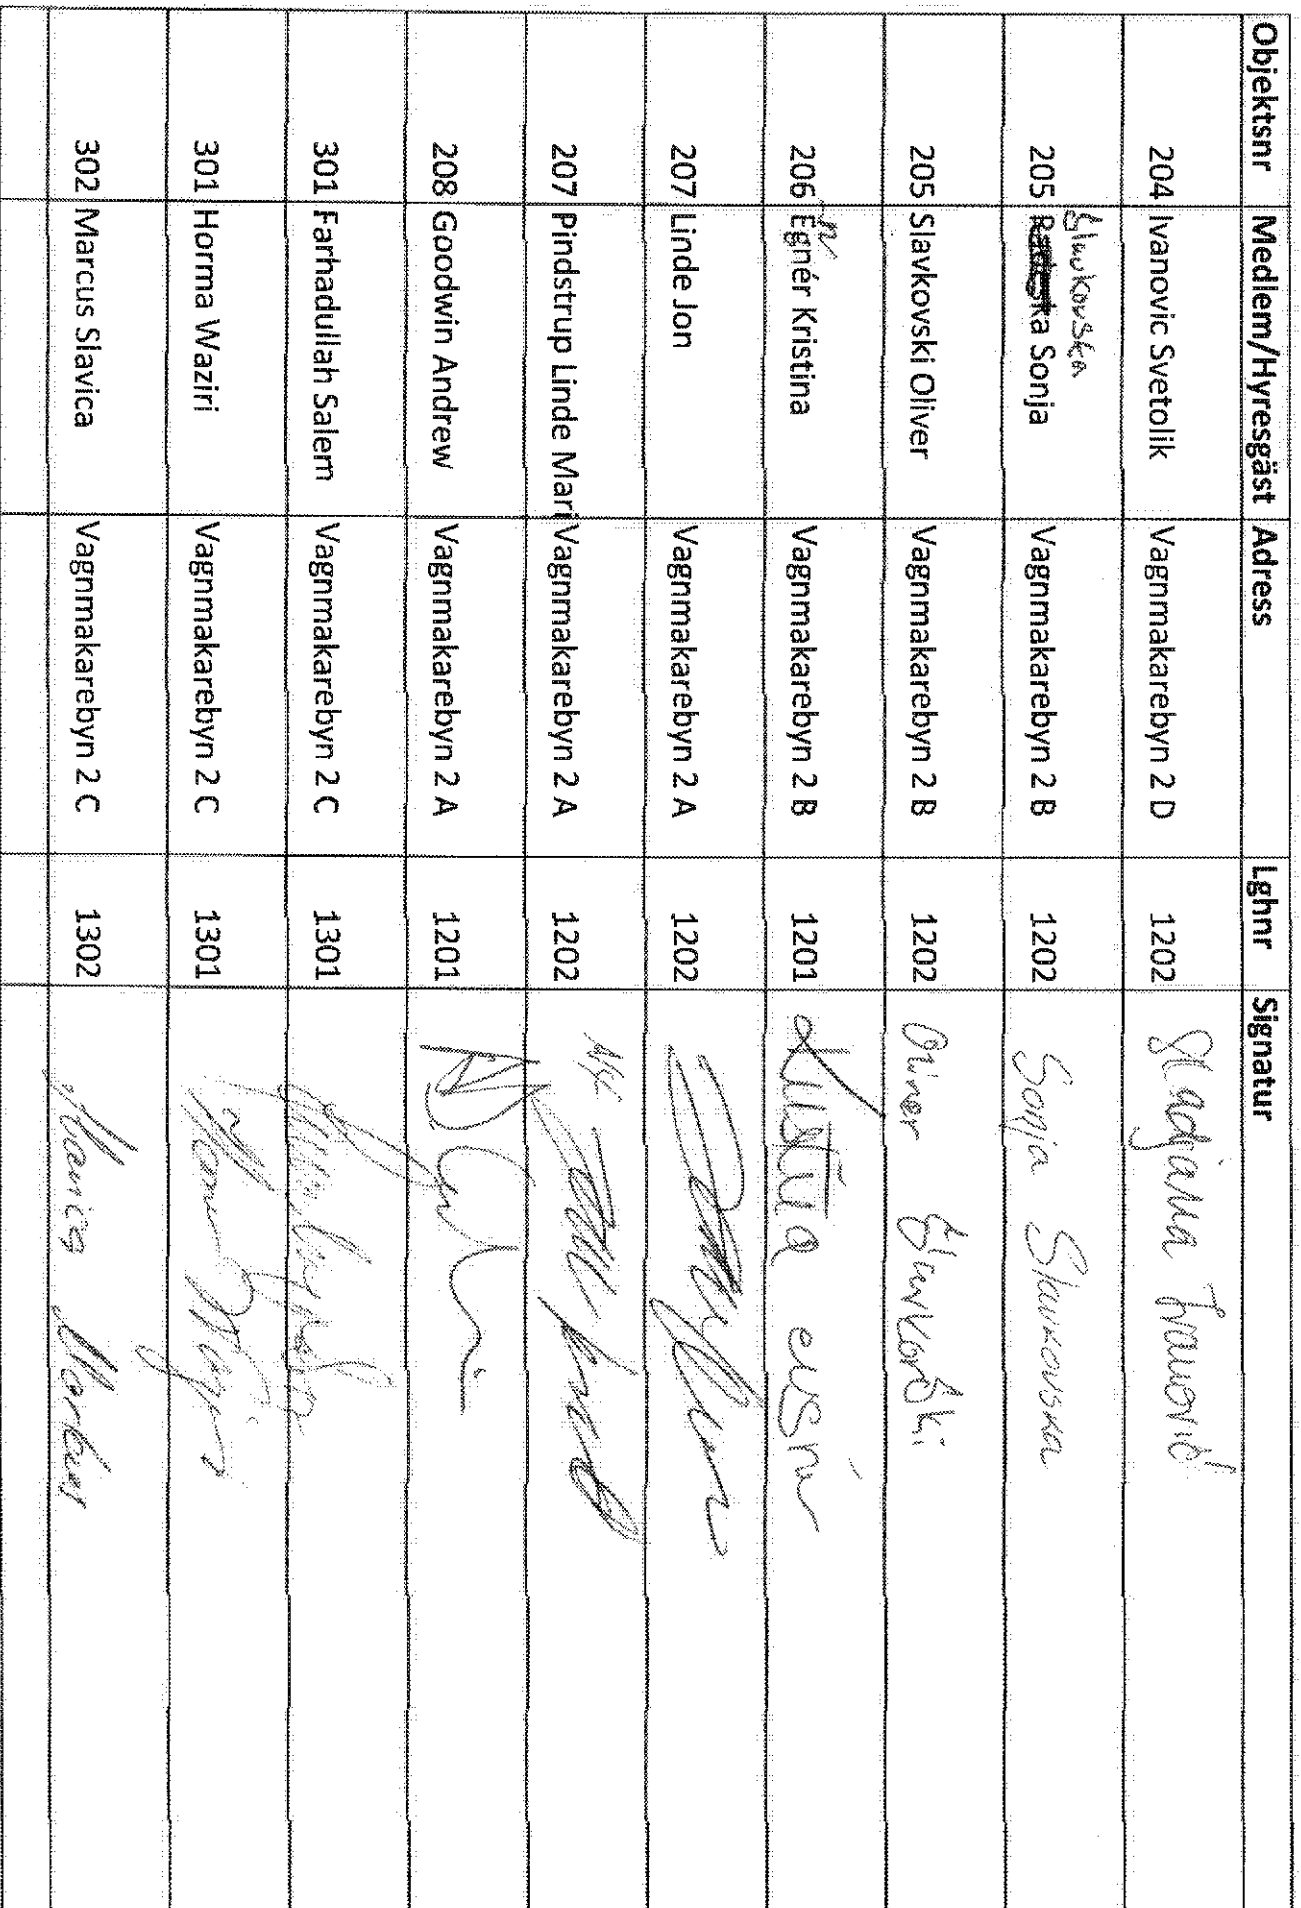 Objektsnr Medlem/Hyresgäst Adress Lghnr Signatur
204 Ivanovic Svetolik Vagnmakarebyn 2 D 1202 Sladjana Ivanović
Slavkovska
205 Sonja Vagnmakarebyn 2 B 1202 Sonja Slavkovska
205 Slavkovski Oliver Vagnmakarebyn 2 B 1202 Oliver Slavkovski
n
206 Egnér Kristina Vagnmakarebyn 2 B 1201 Kristina
207 Linde Jon Vagnmakarebyn 2 A 1202
207 Pindstrup Linde Mari Vagnmakarebyn 2 A 1202
208 Goodwin Andrew Vagnmakarebyn 2 A 1201
301 Farhadullah Salem Vagnmakarebyn 2 C 1301
301 Horma Waziri Vagnmakarebyn 2 C 1301
302 Marcus Slavica Vagnmakarebyn 2 C 1302